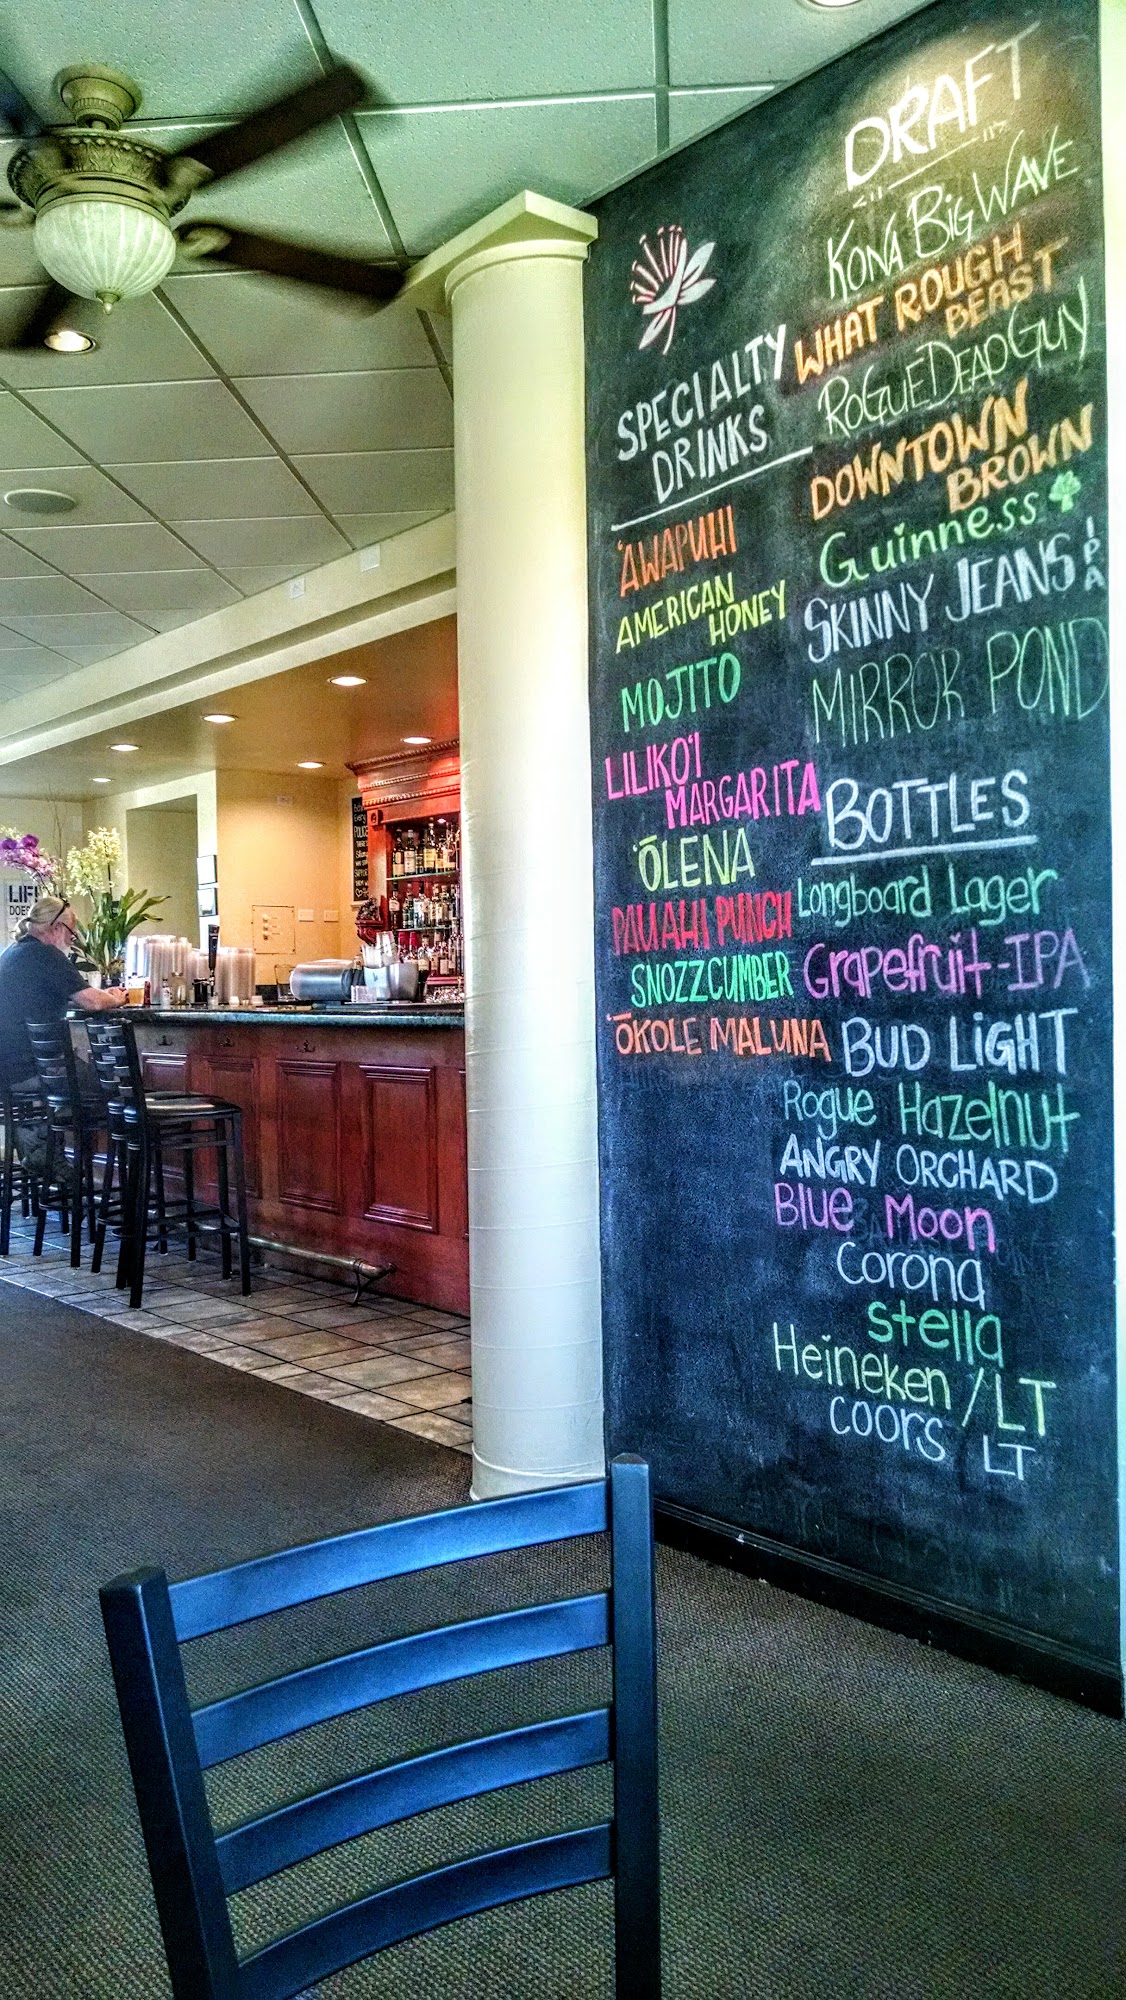 SPECIALTY
DRINKS
'AWAPUHI
AMERICAN
HONEY
MOJITO
LILIKO'I
MARGARITA
'ŌLENA
PAUAHI PUNCH
SNOZZCUMBER
'ŌKOLE MALUNA
DRAFT
KONA BIG WAVE
WHAT ROUGH
BEAST
ROGUE DEAD GUY
DOWNTOWN
BROWN
Guinness
SKINNY JEANS IPA
MIRROR POND
BOTTLES
Longboard Lager
Grapefruit-IPA
BUD LiGHT
Rogue Hazelnut
ANGRY ORCHARD
Blue Moon
Corona
Stella
Heineken /LT
COORS LT
LIFE